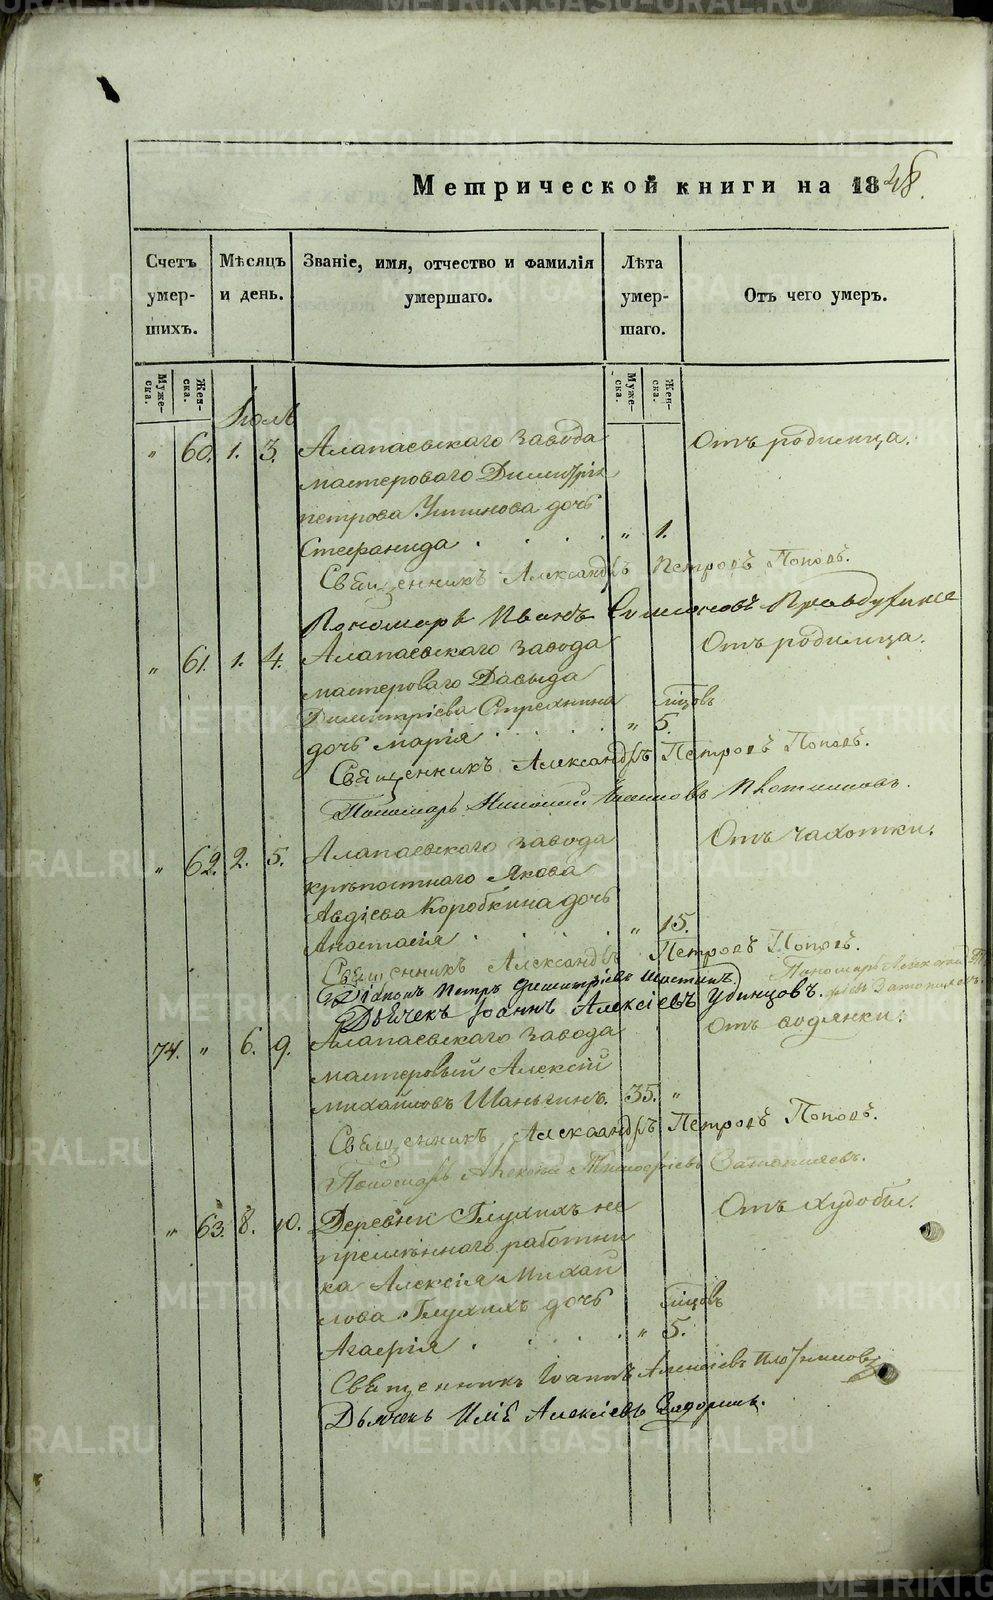 Метрической книги на 1848.
Счетъ умершихъ.
Мѣсяцъ и день.
Званіе, имя, отчество и фамилія умершаго.
Лѣта умершаго.
Отъ чего умеръ.
Мужеска.
Женска.
Мужеска.
Женска.
Іюль
" 60. 1. 3. Алапаевскаго завода Отъ родимца.
мастероваго Димитрія
петрова Устинова дочь
Стефанида " 1.
Священникъ Александръ Петровъ Поповъ.
Пономарь Иванъ Симоновъ
" 61. 1. 4. Алапаевскаго завода Отъ родимца.
мастероваго Давыда
Димитріева Стрехнина мѣсяцовъ
дочь марія " 5.
Священникъ Александръ Петровъ Поповъ.
Пономарь Николай
" 62. 2. 5. Алапаевскаго завода Отъ чахотки.
крѣпостнаго Якова
Авдіева Коробкина дочь
Анастасія " 15.
Священникъ Александръ Петровъ Поповъ.
Діаконъ Петръ Димитріевъ Пономарь Алексѣй
Дьячекъ Іоаннъ Алексіевъ Удинцовъ.
74. " 6. 9. Алапаевскаго завода Отъ водянки.
мастеровый Алексій
михайловъ Шаньгинъ. 35. "
Священникъ Александръ Петровъ Поповъ.
Пономарь Алексѣй
" 63. 8. 10. Деревни Глухихъ не Отъ худобы.
премѣннаго работни
ка Алексія Михай
лова Глухихъ дочь мѣсяцовъ
Агафія " 5.
Священникъ Іоаннъ Алексіевъ Плотниковъ
Дьячекъ Илія Алексіевъ
METRIKI.GASO-URAL.RU